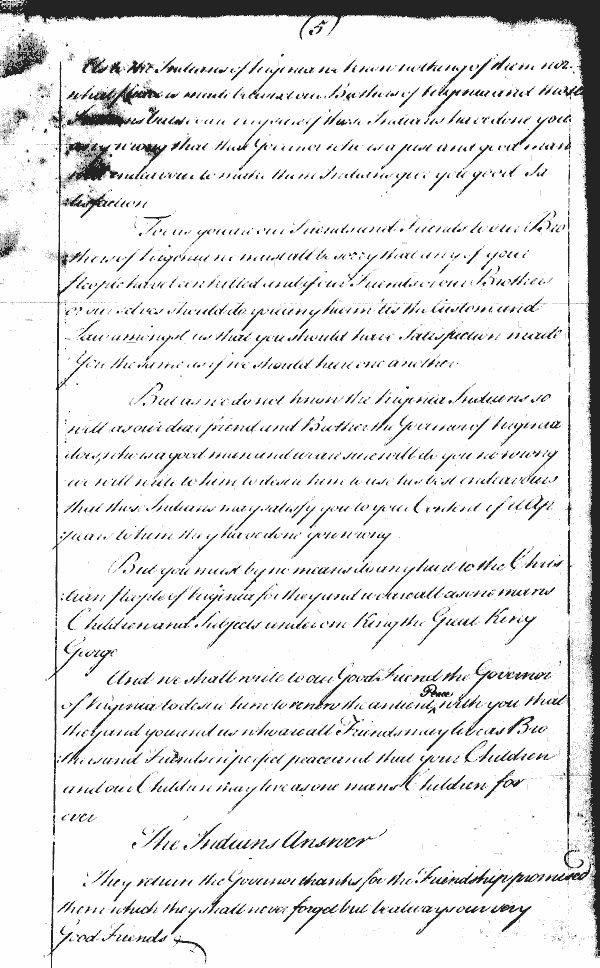 (5)
As to the Indians of Virginia we know nothing of them nor
what Peace is made between our Brothers of Virginia and those
Indians but we can enquire if those Indians have done you
any wrong that that Governor who is a just and good man
will endeavour to make them Indians give you good Sa
tisfaction
For as you are our Friends and Friends to our Bro
thers of Virginia we must all be sorry that any of your
People have been killed and if our Friends or our Brothers
or our selves should do you any harm 'tis the Custom and
Law amongst us that you should have Satisfaction made
You the same as if we should hurt one another
But as we do not know the Virginia Indians so
well as our dear friend and Brother the Governor of Virginia
does, who is a good man and we are sure will do you no wrong
we will write to him to desire him to use his best endeavours
that those Indians may satisfy you to your Content if it Ap
pears to him they have done you wrong
But you must by no means do any hurt to the Chris
tian People of Virginia for they and we are all as one mans
Children and Subjects under one King the Great King
George
And we shall write to our Good Friend the Governor
of Virginia to desire him to renew the antient Peace with you that
they and you and us who are all Friends may live as Bro
thers and Friends in perfect peace and that your Children
and our Children may live as one mans Children for
ever
The Indians Answer
They return the Governor thanks for the Friendship promised
them which they shall never forget but be always our very
Good Friends